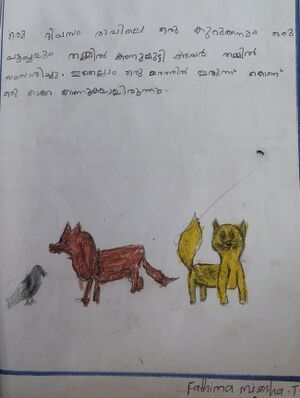 ഒരു ദിവസം രാവിലെ ഒരു കുറുക്കനും ഒരു
പൂച്ചയും തമ്മിൽ കണ്ടുമുട്ടി അവർ തമ്മിൽ
സംസാരിച്ചു. ഇതെല്ലാം ഒരു മരത്തിൽ ഇരുന്ന് കൊണ്ട്
ഒരു കാക്ക കാണുകയായിരുന്നു.
Fathima T